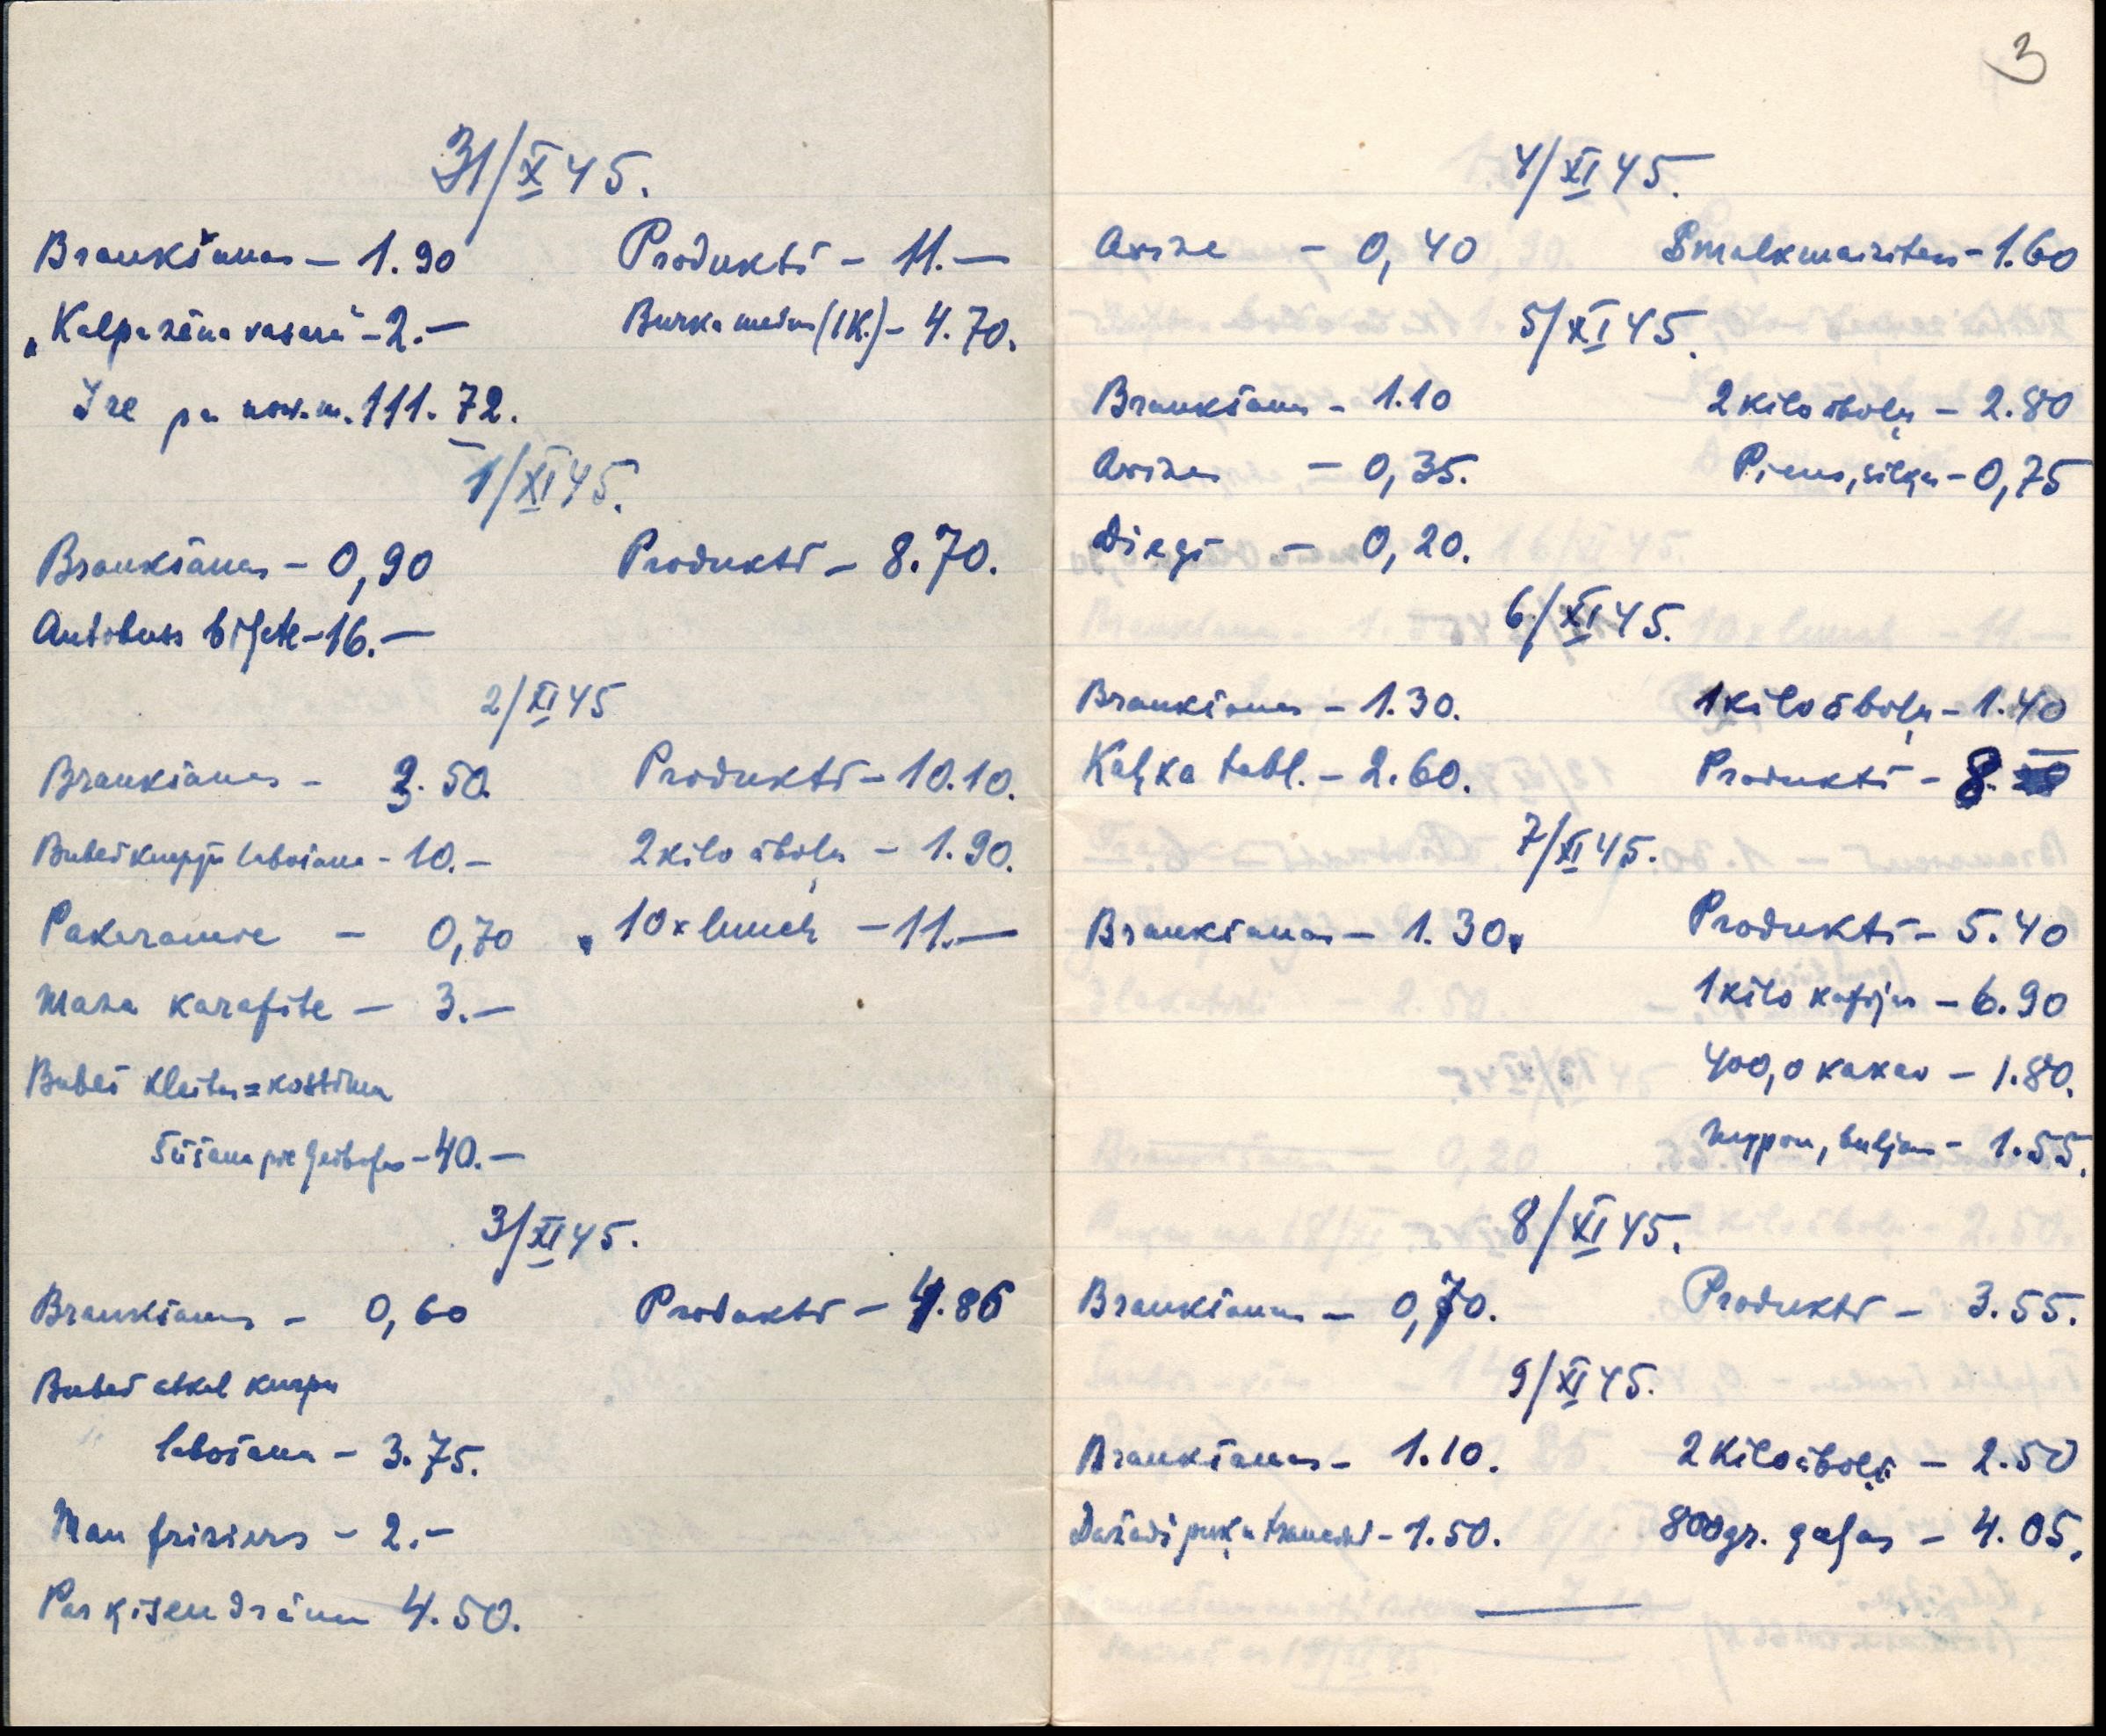 31/X 45.
Braukšanas – 1.90 Produkti – 11.—
"Kalpa zēna vasara" – 2.— Burka medus (1K.) – 4.70.
Īre pa nov. m. 111.72.
1/XI 45.
Braukšanas – 0,90 Produkti – 8.70.
Autobuss biļete – 16.—
2/XI 45
Braukšanas – 3.50. Produkti – 10.10.
Bubes kurpju labošana – 10.— 2 kilo ābolu – 1.90.
Pakaramie – 0,70 10 x lunch – 11.—
Maza karafīte – 3.—
Bubes kleitas = kostīma
šūšana pie – 40.—
3/XI 45.
Braukšanas – 0,60 Produkti – 4.86
Bubes atkal kurpu
labošana – 3.75.
Man frizieris – 2.—
Par ķīsendrānu 4.50.
3
4/XI 45.
Avīze – 0,40 Smalkmaizītes – 1.60
5/XI 45.
Braukšana – 1.10 2 kilo ābolu – 2.80
Avīzes – 0,35. Piens, siļķes – 0,75
Diegi – 0,20.
6/XI 45.
Braukšanas – 1.30. 1 kilo ābolu – 1.40
Kaļķa tabl. – 2.60. Produkti – 8.—
7/XI 45.
Braukšanas – 1.30. Produkti – 5.40
1 kilo kafijas – 6.90
400,0 kakao – 1.80.
Nyppon, buljons – 1.55.
8/XI 45.
Braukšanas – 0,70. Produkti – 3.55.
9/XI 45.
Braukšanas – 1.10. 2 kilo āboli – 2.50
Dažādi puķu trauciņi – 1.50. 800 gr. gaļas – 4.05.